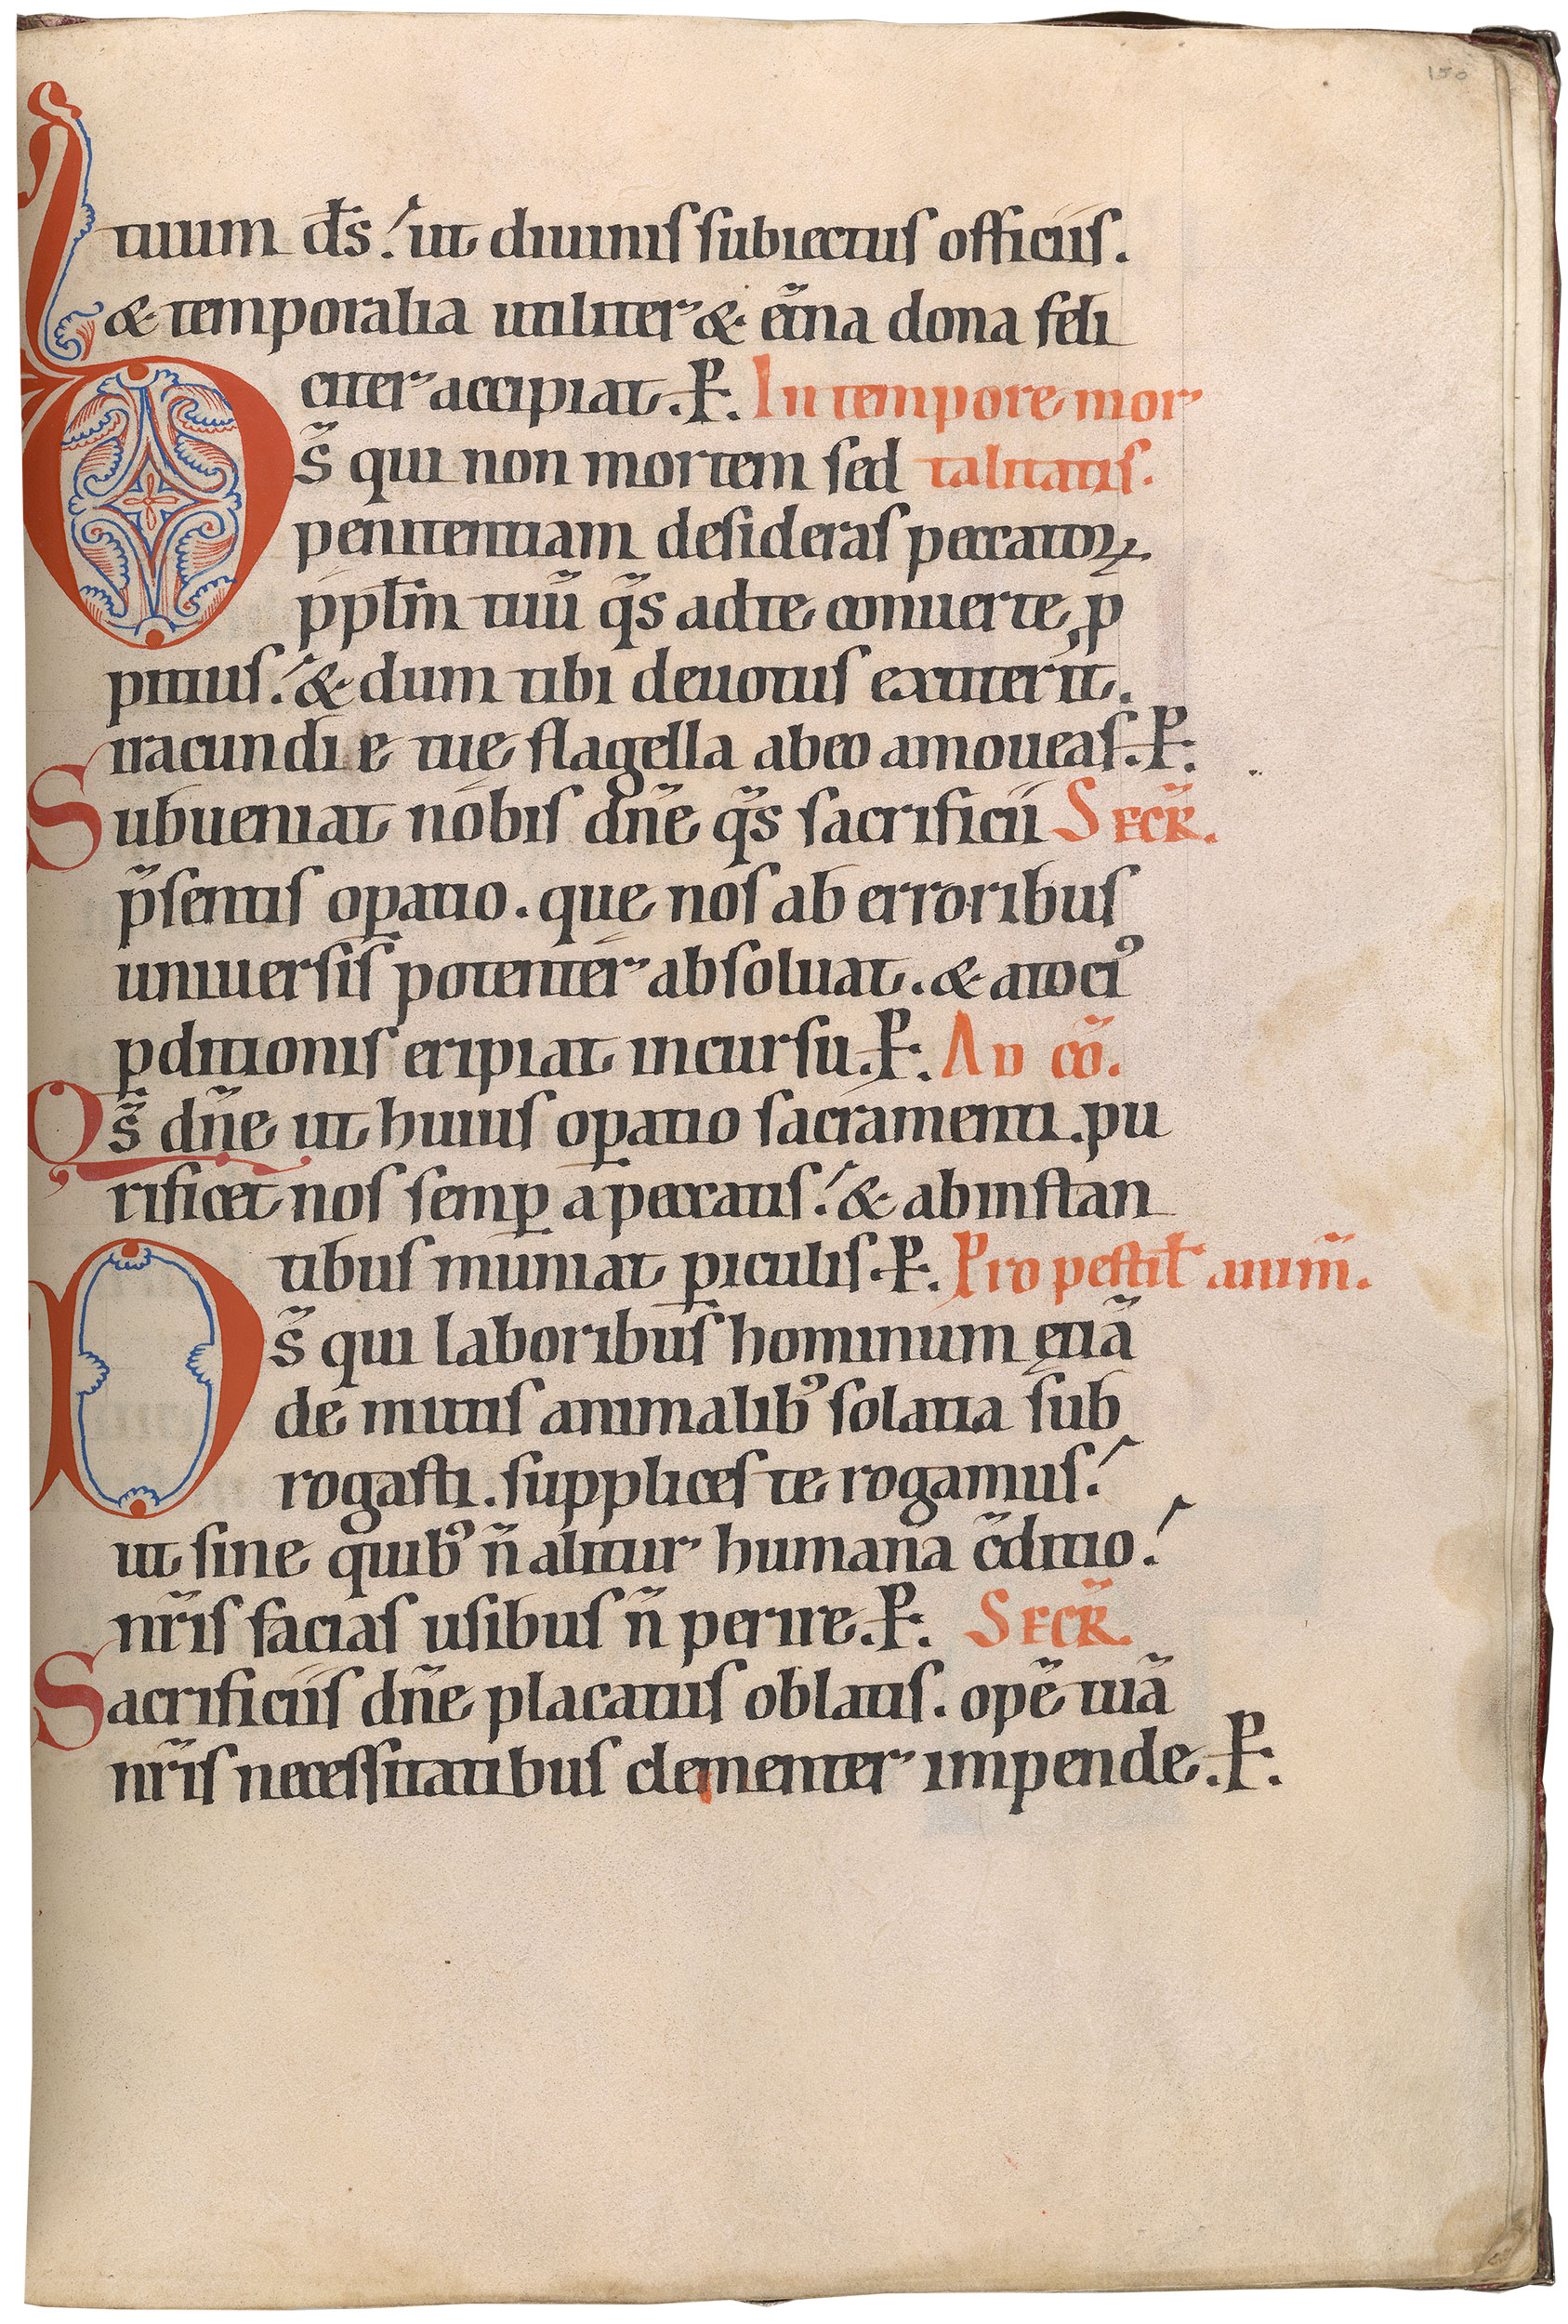 150
tuum ds̄. ut diuinis subiectus officiis.
& temporalia utiliter & et̄na dona feli
citer accipiat. P. In tempore mor
D s̄ qui non mortem sed talitatis.
penitentiam desideras peccatoꝝ
ppl̄m tuū q̄s ad te conuerte, p
pitius. & dum tibi deuotus extiterit.
iracundie tue flagella ab eo amoueas. P.
Subueniat nobis dn̄e q̄s sacrificii SECR̄.
p̄sentis oꝑatio. que nos ab erroribus
uniuersis potenter absoluat. & a toci᾽
ꝑditionis eripiat incursu. P. AD cō.
Qs̄ dn̄e ut huius oꝑatio sacramenti. pu
rificet nos semꝑ a peccatis. & ab instan
tibus muniat ꝑiculis. P. Pro pestil̄ anim̄.
D s̄ qui laboribus hominum etiā
de mutis animalib᾽ solatia sub
rogasti. supplices te rogamus.
ut sine quib᾽ n̄ alitur humana c̄ditio.
nr̄is facias usibus n̄ perire. P. SECR̄.
Sacrificiis dn̄e placatus oblatis. opē tuā
nr̄is necessitatibus clementer impende. P.